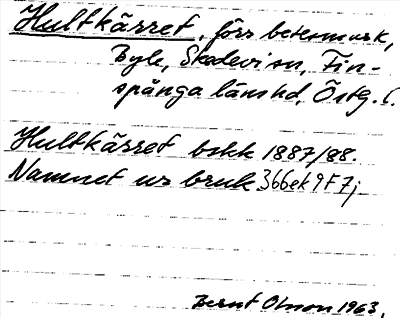 Hultkärret, förr betesmark,
Byle, Skedevi sn, Fin-
spånga länshd, Östg. l.
Hultkärret bskk 1887/88.
Namnet ur bruk 366ek9F7j
Bernt Olsson 1963.